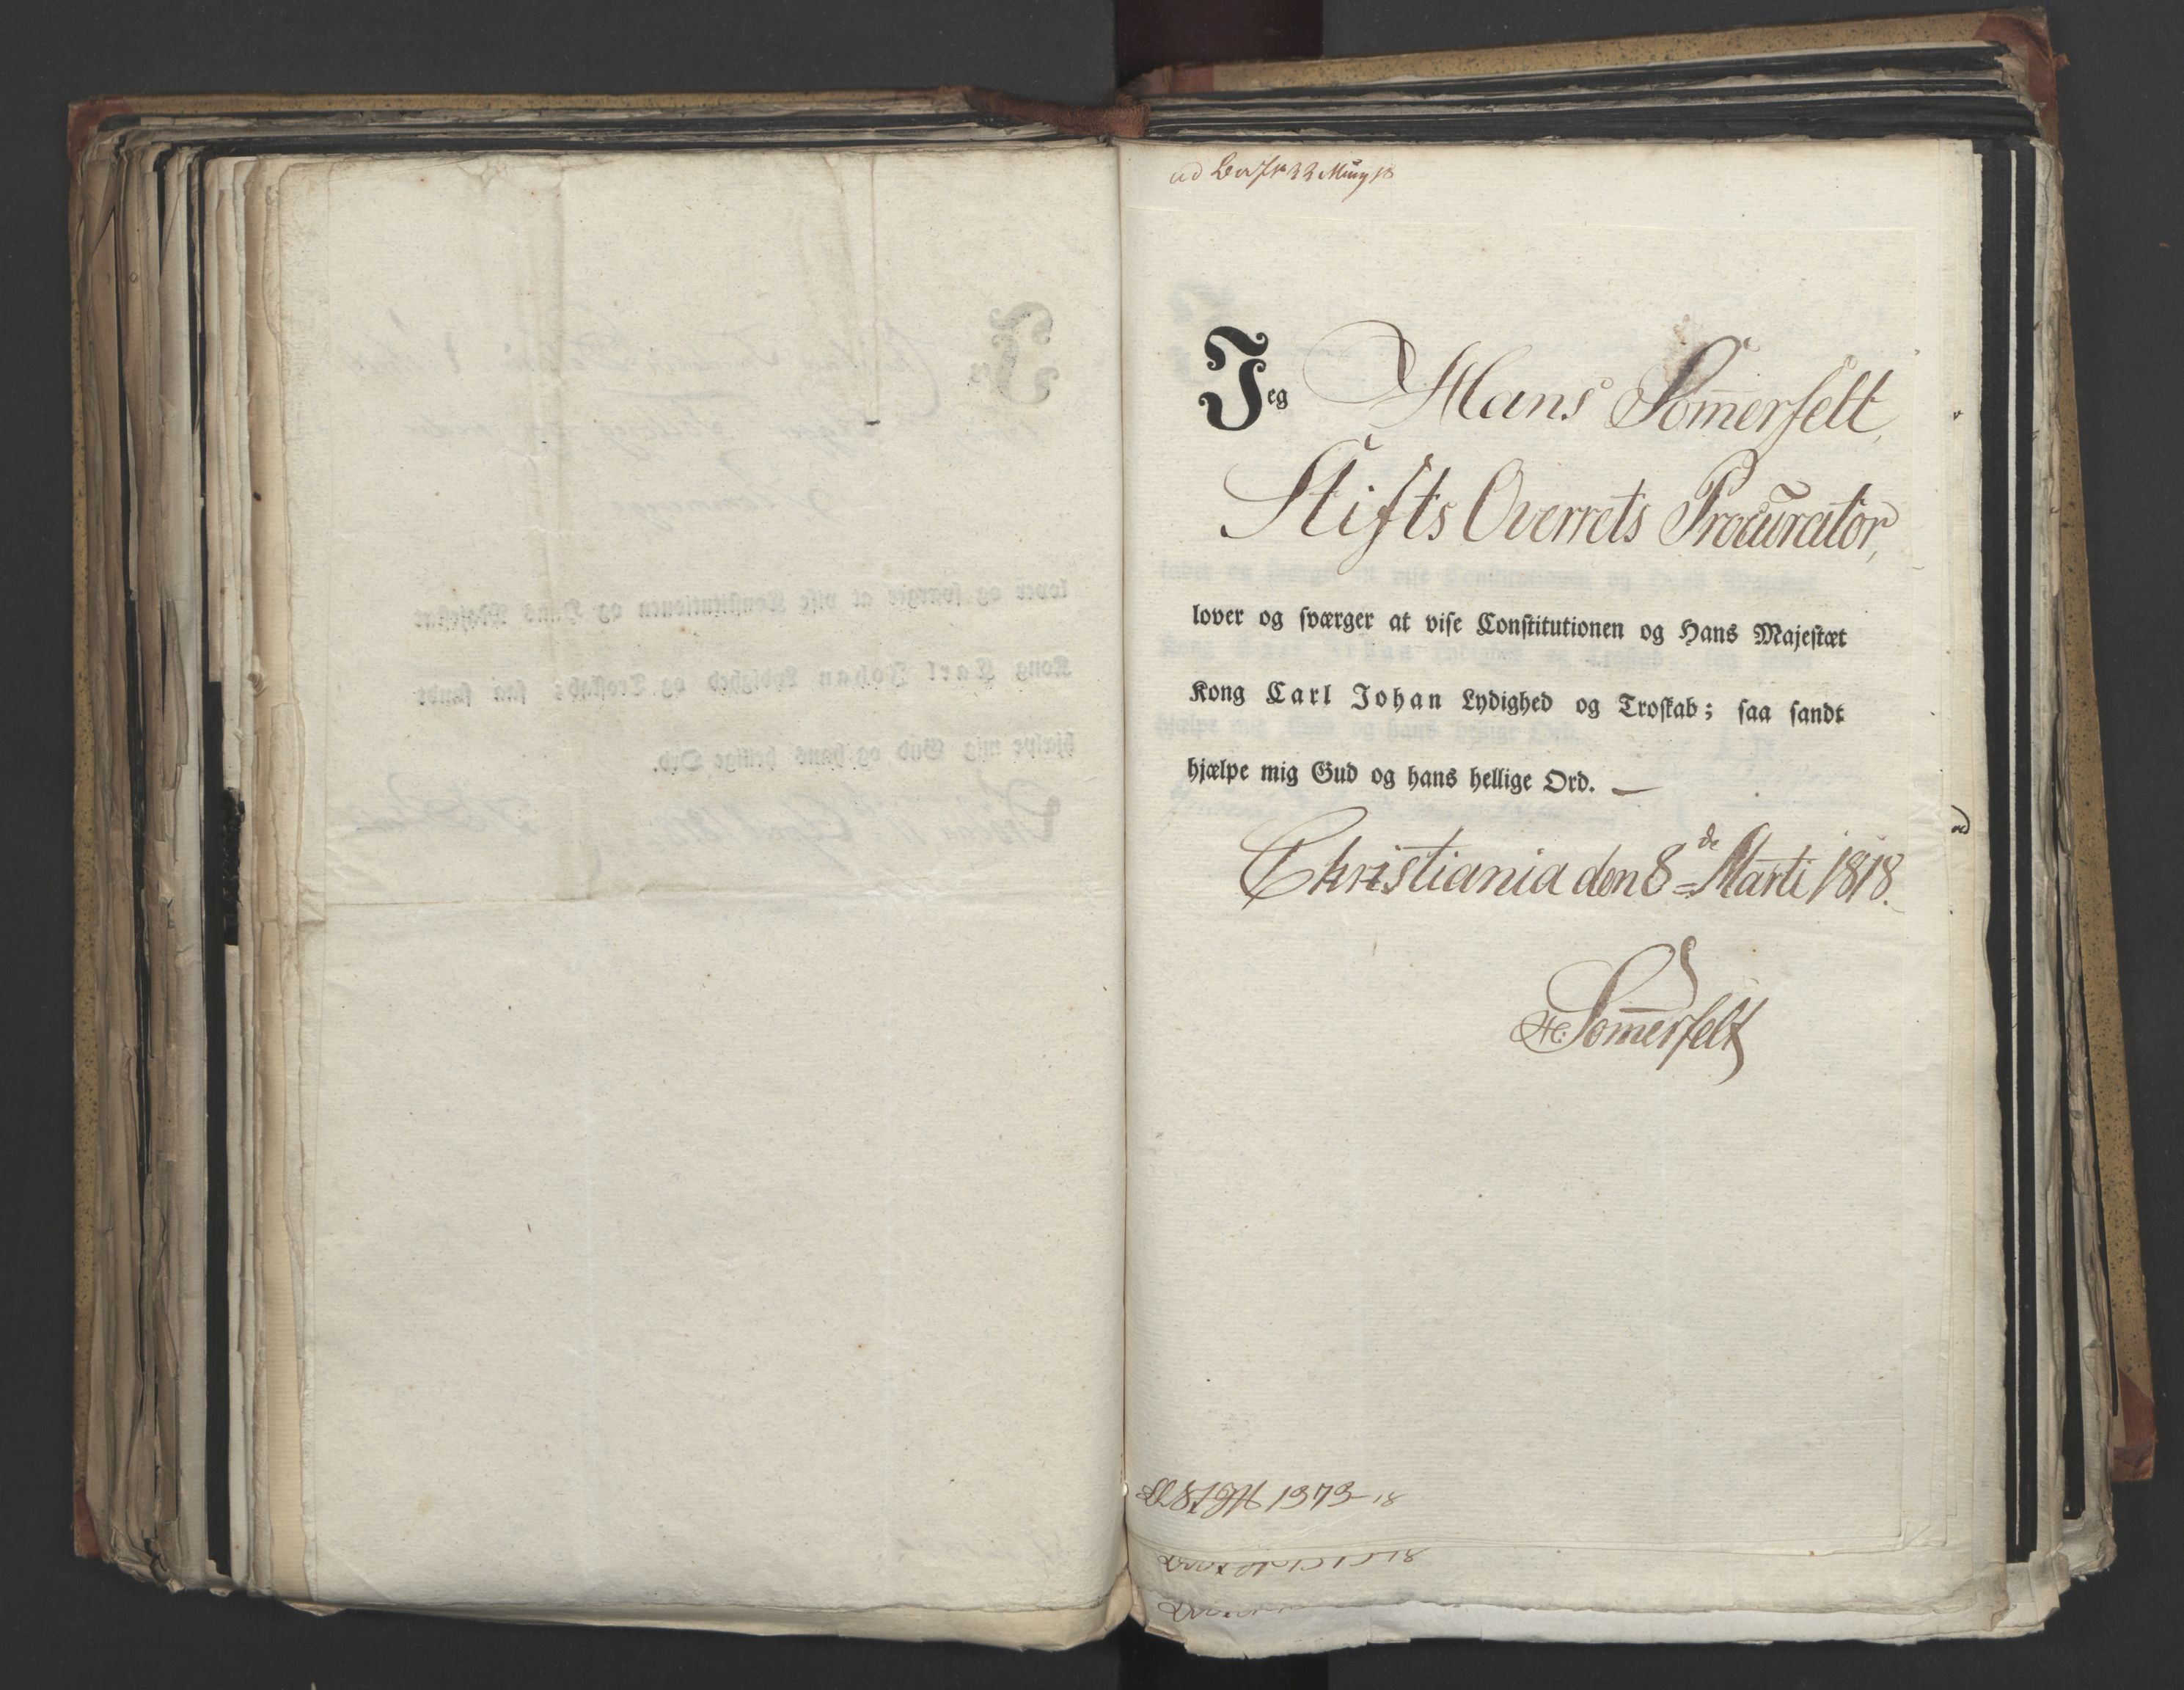 Jeg Hans Som̄erfelt,
Stifts Overrets Procurator,
lover og sværger at vise Constitutionen og Hans Majestæt
Kong Carl Johan Lydighed og Troskab; saa sandt
hjælpe mig Gud og hans hellige Ord. —
Christiania den 8de Marti 1818.
H: Som̄erfelt
1373 18